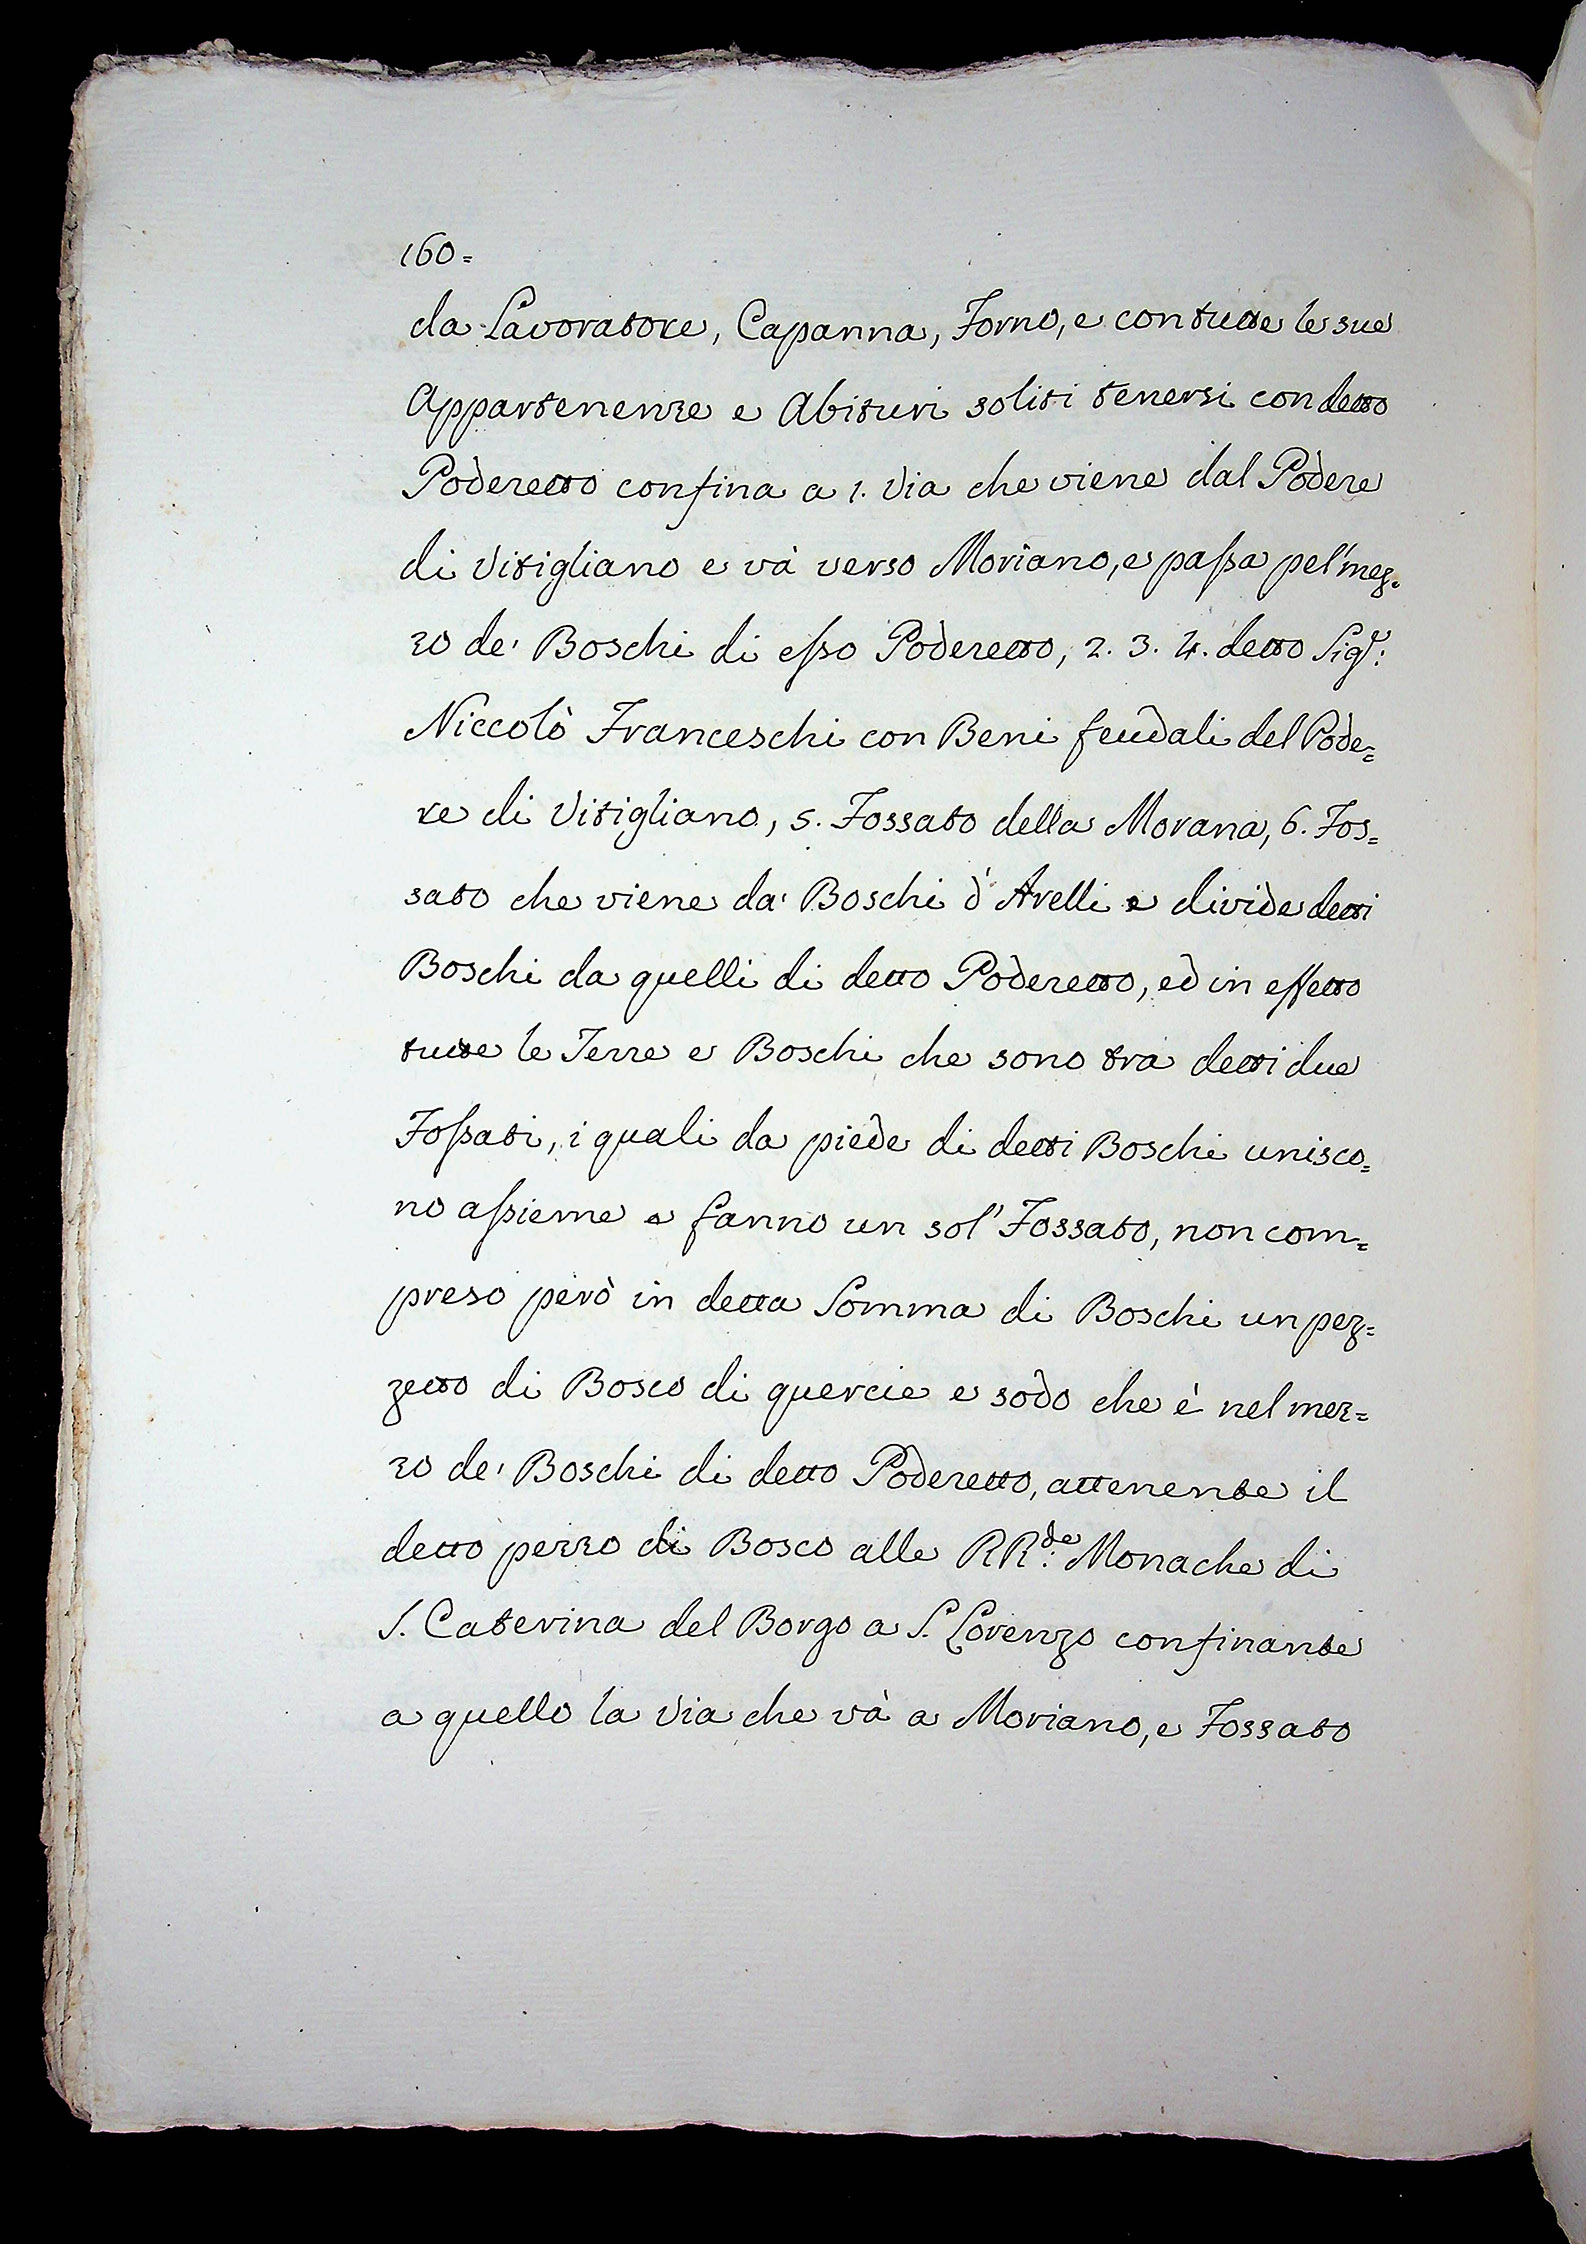 160=
da Lavoratore, Capanna, Forno, e con tutte le sue
Appartenenze e Abituri soliti tenersi con detto
Poderetto confina a 1. Via che viene dal Podere
di Vitigliano e và verso Moriano, e passa pel' mez=
zo de' Boschi di esso Poderetto, 2. 3. 4. detto Sig.r:
Niccolò Franceschi con Beni feudali del Pode=
re di Vitigliano, 5. Fossato della Morana, 6. Fos=
sato che viene da' Boschi d' Arelli e divide detti
Boschi da quelli di detto Poderetto, ed in effetto
tutte le Terre e Boschi che sono tra detti due
Fossati, i quali da piede di detti Boschi unisco=
no assieme e fanno un sol' Fossato, non com=
preso però in detta Somma di Boschi un pez=
zetto di Bosco di quercie e sodo che è nel mez=
zo de' Boschi di detto Poderetto, attenente il
detto pezzo di Bosco alle RR.de: Monache di
S. Caterina del Borgo a S. Lorenzo confinante
a quello la Via che và a Moriano, e Fossato